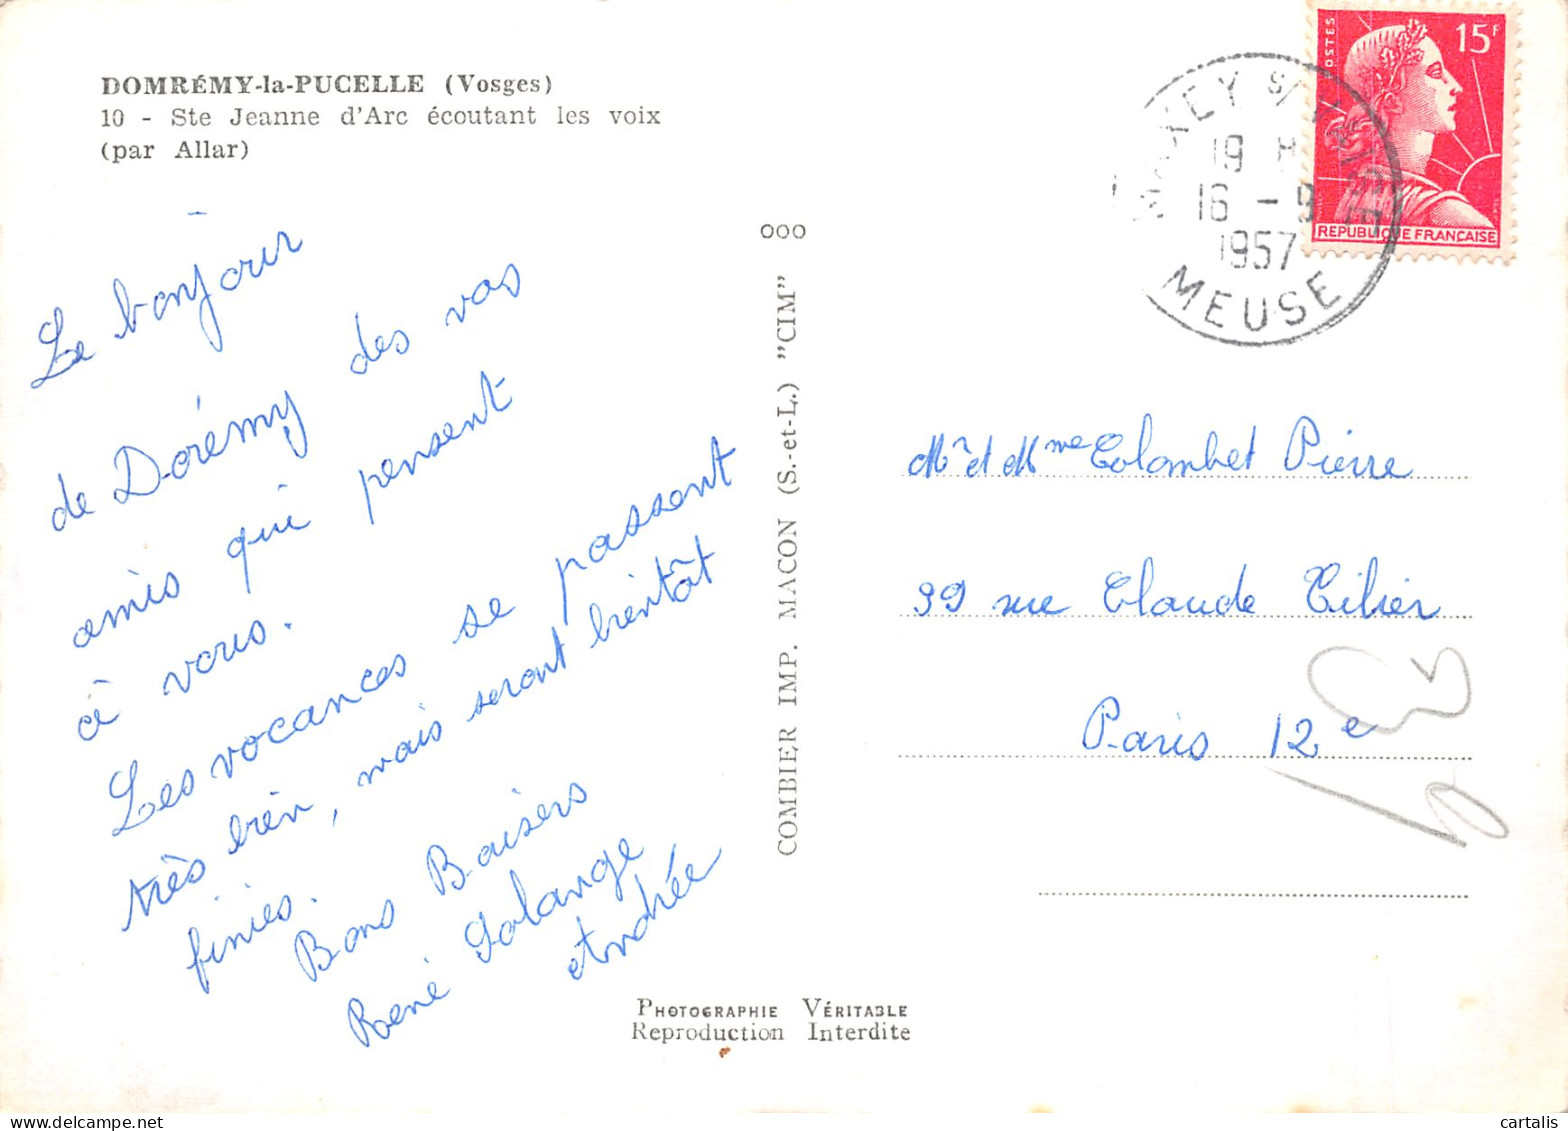 DOMRÉMY-la-PUCELLE (Vosges)
10 - Ste Jeanne d'Arc écoutant les voix
(par Allar)
Le bonjour
de Dorémy des vos
amis qui pensent
à vous.
Les vacances se passent
très bien, mais seront bientôt
finies.
Bons Baisers
René Solange
et Andrée
000
COMBIER IMP. MACON (S.-et-L.) "CIM"
PHOTOGRAPHIE VÉRITABLE
Reproduction Interdite
POSTES
15F
REPUBLIQUE FRANÇAISE
MAXEY S/ VAISE
19 H
16 - 9
1957
MEUSE
Mr et Mme Colombet Pierre
99 rue Claude Tilier
Paris 12e
cartalis